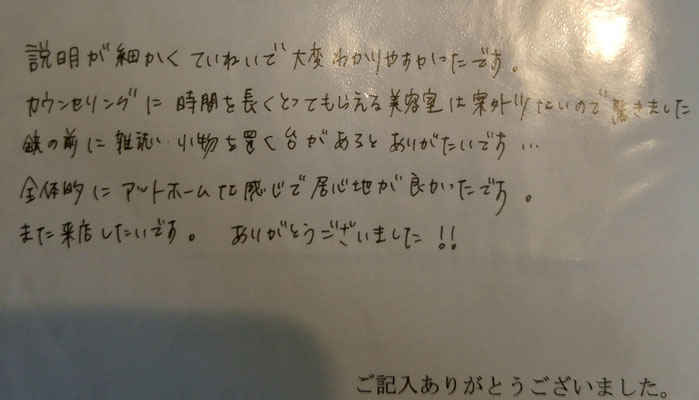 説明が細かくていねいで大変わかりやすかったです。
カウンセリングに時間を長くとってもらえる美容室は案外少ないので驚きました
鏡の前に雑誌・小物を置く台があるとありがたいです…
全体的にアットホームな感じで居心地が良かったです。
また来店したいです。 ありがとうございました!!
ご記入ありがとうございました。